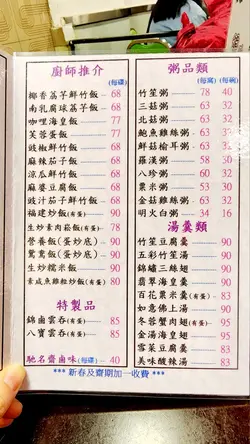 廚師推介 (每碟)
椰香荔芋鮮竹飯 68
南乳腐球荔芋飯 68
咖哩海皇飯 77
芙蓉蛋飯 68
豉椒鮮竹飯 68
麻辣茄子飯 68
涼瓜鮮竹飯 68
麻婆豆腐飯 68
豉汁茄子鮮竹飯 68
福建炒飯(有蛋) 90
生炒素肉崧飯(有蛋) 90
營養飯(蛋炒底) 90
鴛鴦飯(蛋炒底) 90
生炒糯米飯 90
素咸魚雞粒炒飯(有蛋) 90
特製品
錦鹵雲吞(有蛋) 85
八寶雲吞(有蛋) 85
馳名齋鹵味(每碟) 40
粥品類
(每窩) (每碗)
竹笙粥 78 40
三菇粥 63 32
北菇粥 63 32
鮑魚雞絲粥 63 32
鮮菇榆耳粥 63 32
羅漢粥 58 30
八珍粥 60 32
粟米粥 58 30
金菇雞絲粥 63 32
明火白粥 34 16
湯羹類
竹笙豆腐羹 90
五彩竹笙湯 90
錦繡三絲翅 90
翡翠海皇羹 90
百花粟米羹(有蛋) 90
如意佛上湯 90
冬蓉蟹肉翅(有蛋) 95
金湯海皇翅 95
雪菜豆腐羹 83
美味酸辣湯 83
*** 新春及齋期加一收費 ***